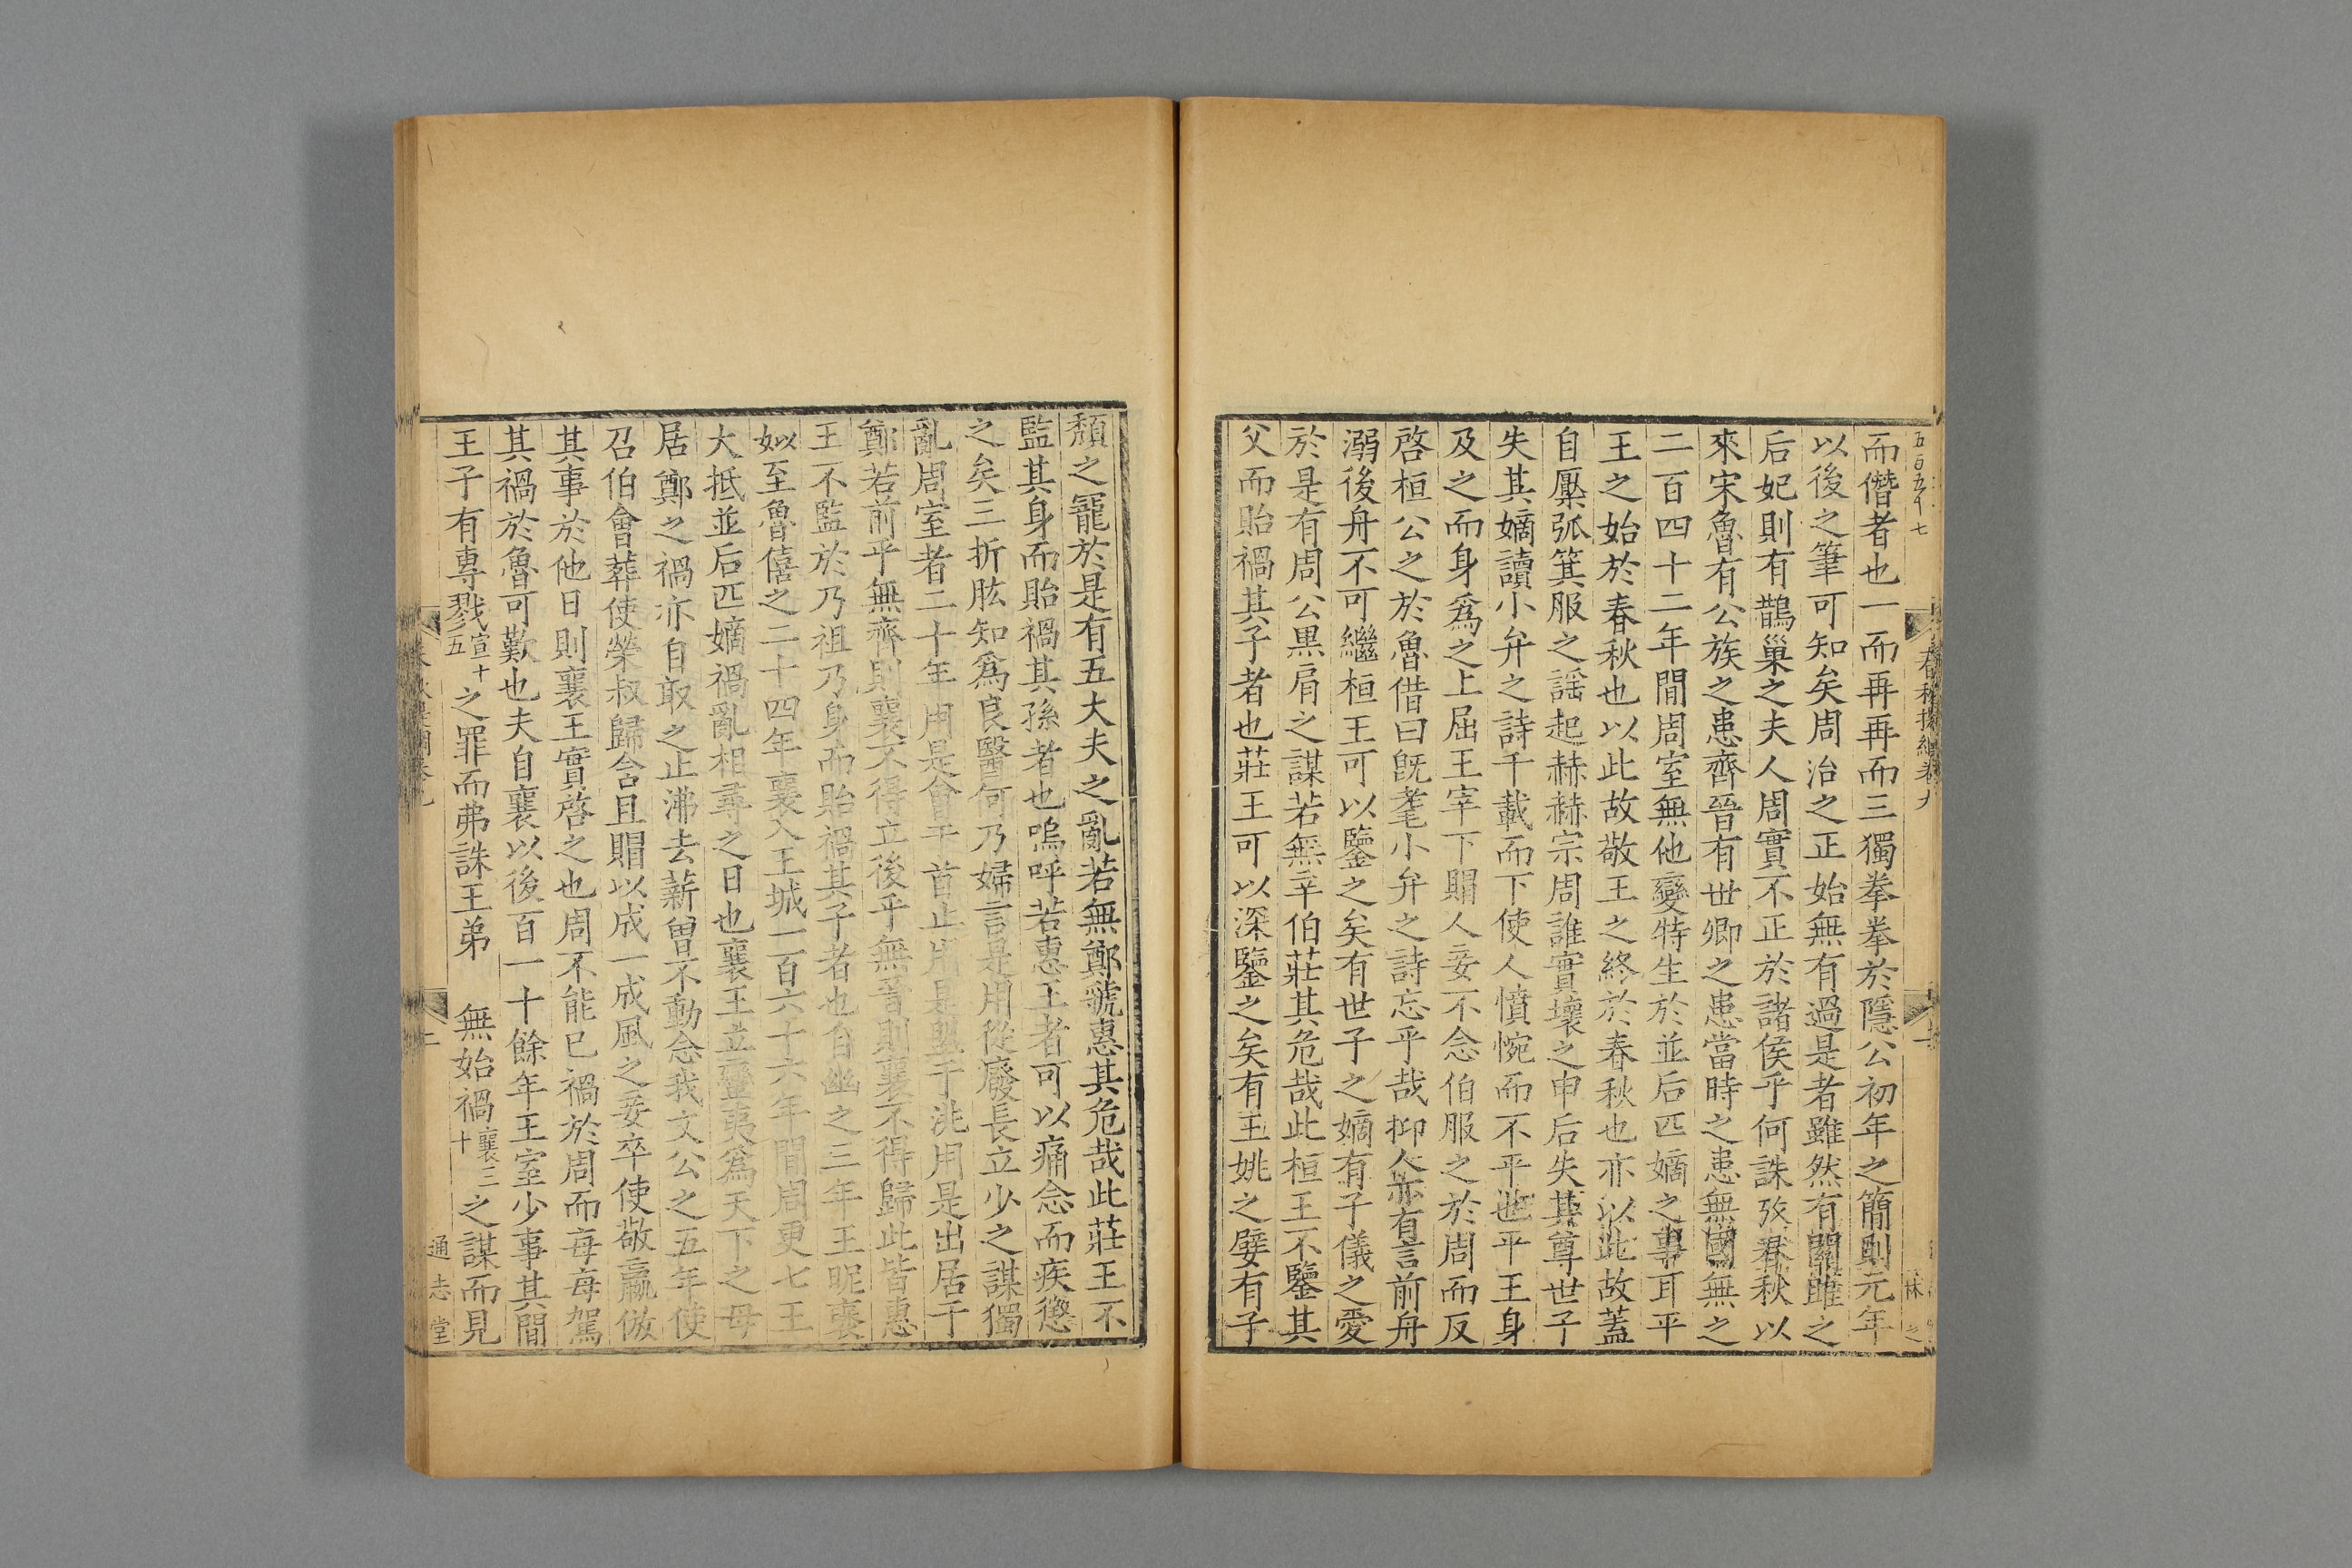 而僭者也一而再再而三獨拳拳於隱公初年之簡則元年
以後之筆可知矣周治之正始無有過是者雖然有關雎之
后妃則有鵲巢之夫人周實不正於諸侯乎何誅攷春秋以
來宋魯有公族之患齊晉有世卿之患當時之患無國無之
二百四十二年間周室無他變特生於並后匹嫡之事耳平
王之始於春秋也以此故敬王之終於春秋也亦以此故蓋
自檿弧箕服之謡起赫赫宗周誰實壞之申后失其尊世子
失其嫡讀小弁之詩千載而下使人憤惋而不平也平王身
及之而身爲之上屈王宰下賵人妾不念伯服之於周而反
啓桓公之於魯借曰旣耄小弁之詩忘乎哉抑人亦有言前舟
溺後舟不可繼桓王可以鑒之矣有世子之嫡有子儀之愛
於是有周公黑肩之謀若無辛伯莊其危哉此桓王不鑒其
父而貽禍其子者也莊王可以深鑒之矣有王姚之嬖有子
頽之寵於是有五大夫之亂若無鄭虢惠其危哉此莊王不
監其身而貽禍其孫者也嗚呼若惠王者可以痛念而疾懲
之矣三折肱知爲良醫何乃婦言是用從廢長立少之謀獨
亂周室者二十年用是會于首止用是盟于洮用是出居于
鄭若前乎無齊則襄不得立後乎無晉則襄不得歸此皆惠
王不監於乃祖乃身而貽禍其子者也自幽之三年王昵褒
姒至魯僖之二十四年襄入王城一百六十六年間周更七王
大抵並后匹嫡禍亂相尋之日也襄王立翟夷爲天下之母
居鄭之禍亦自取之止沸去薪曽不動念我文公之五年使
召伯會葬使榮叔歸含且賵以成一成風之妾卒使敬嬴倣
其事於他日則襄王實啓之也周不能已禍於周而每每駕
其禍於魯可歎也夫自襄以後百一十餘年王室少事其間
王子有專戮宣十五之罪而弗誅王弟 無始禍襄三十之謀而見
春秋提綱卷九
通志堂